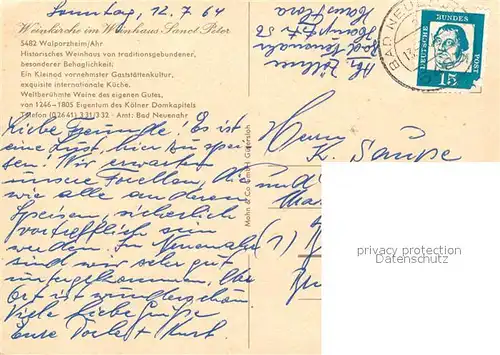 Sonntag, 12.7.64
Weinkirche im Weinhaus Sanct Peter
5482 Walporzheim/Ahr
Historisches Weinhaus von traditionsgebundener,
besonderer Behaglichkeit;
Ein Kleinod vornehmster Gaststättenkultur,
exquisite internationale Küche.
Weltberühmte Weine des eigenen Gutes,
von 1246–1805 Eigentum des Kölner Domkapitels
Telefon (02641) 331/332 · Amt: Bad Neuenahr
Liebe Freunde! Es ist
eine Lust, hier zu spei-
sen! Wir erwarten
unsere Forellen, die
wie alle anderen
Speisen, sicherlich
vortrefflich sein
werden. In Neuenahr
sind wir sehr gut
untergekommen. Der
Ort ist wunderschön
Viele liebe Grüße
Eure + Kurt
Mohn & Co GmbH Gütersloh
Bad Neuenahr
Haus Flora
BAD NEUENAHR
DEUTSCHE BUNDESPOST
15
Herrn
K.
und
(1)
privacy protection
DARABANTH.COM